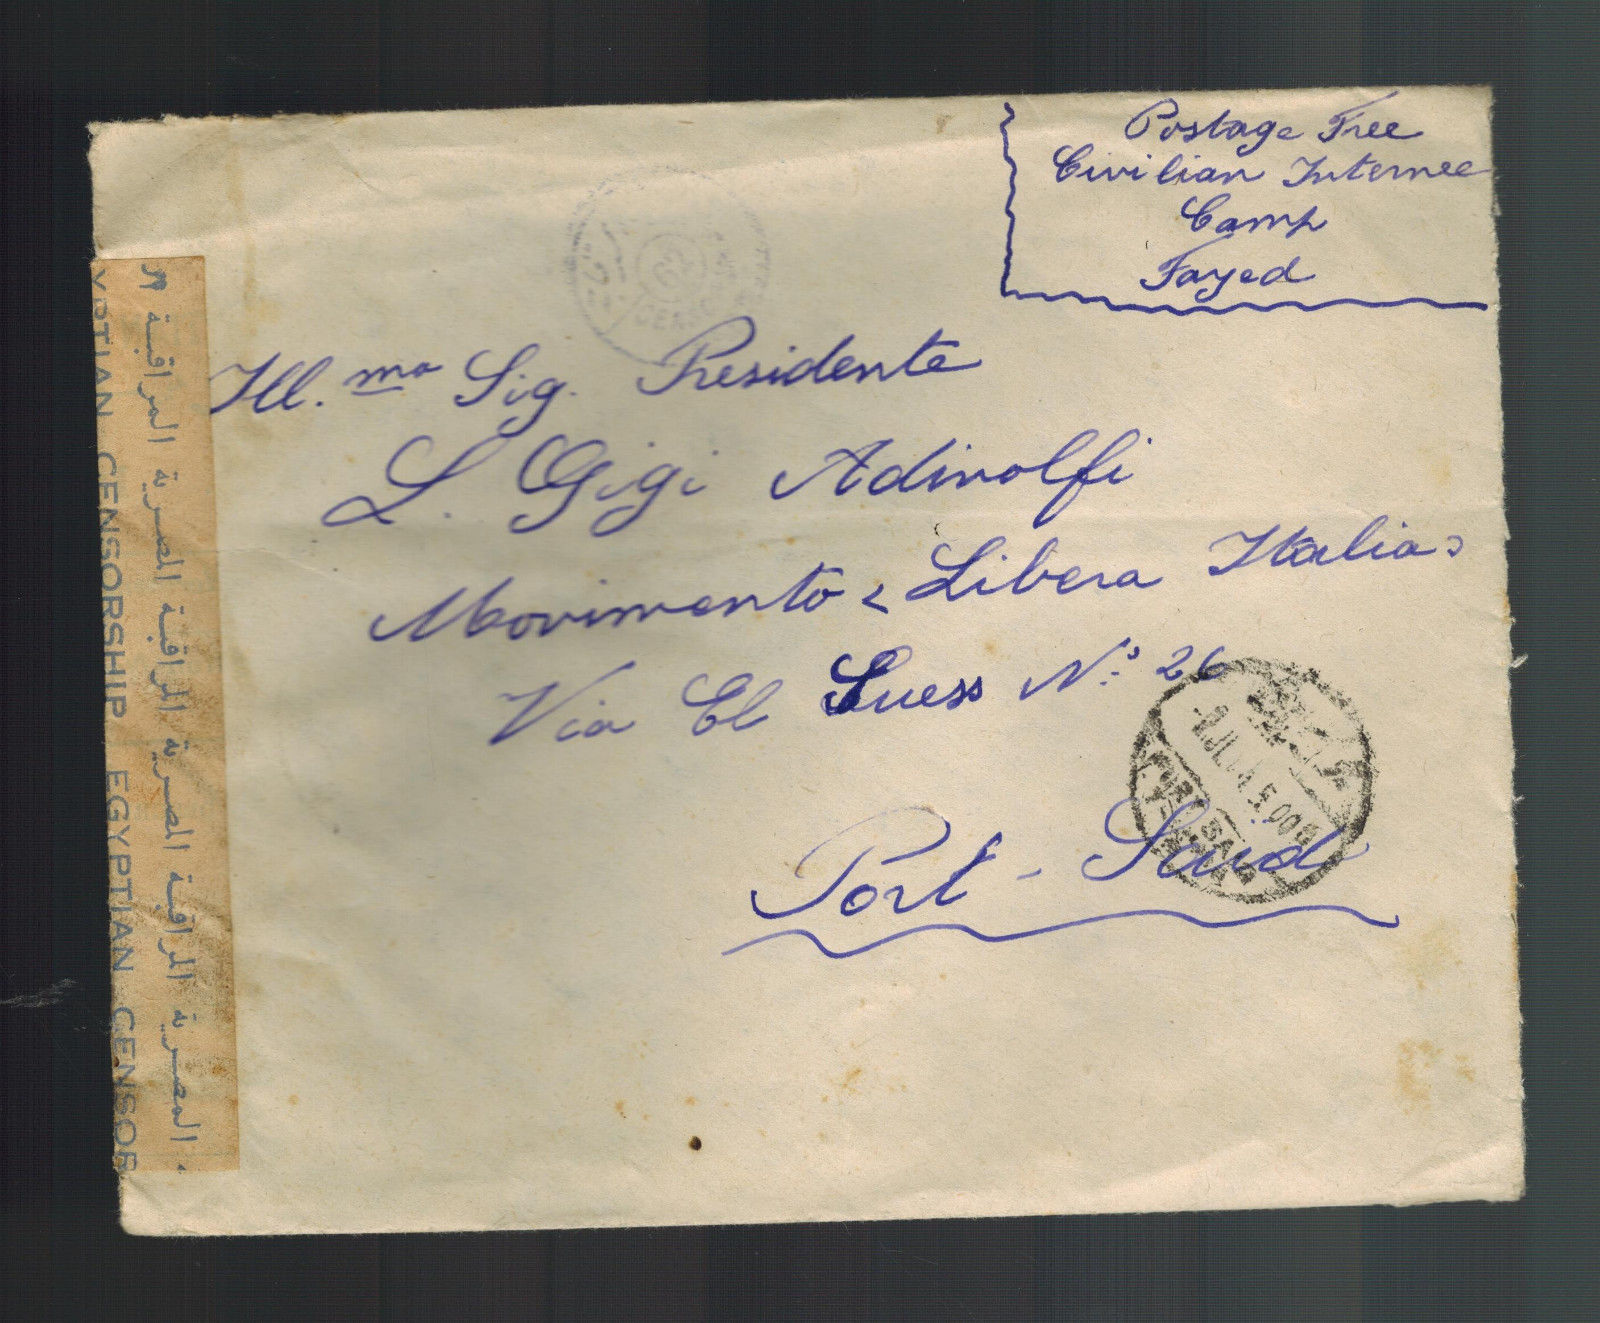 Postage Free
Civilian Internee
Camp
Fayed
Ill.mo Sig. Presidente
L. Gigi Adinolfi
Movimento < Libera Italia >
Via El Suess N.° 26
Port - Said
PORT SAID
JU 45
CENSOR
YPTIAN CENSORSHIP EGYPTIAN CENSOR
المراقبة المصرية المراقبة المصرية المراقبة المصرية